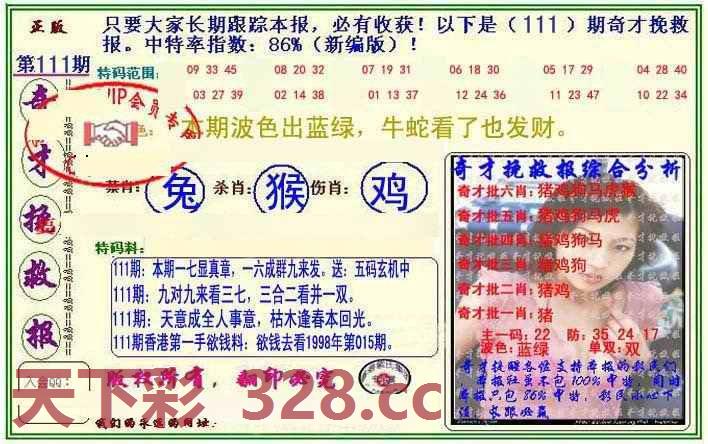 正版
只要大家长期跟踪本报，必有收获！以下是（111）期奇才挽救
报。中特率指数：86%（新编版）！
第111期
特码范围：
09 33 45 08 20 32 07 19 31 06 18 30 05 17 29 04 28 40
03 27 39 02 14 38 01 13 37 12 24 36 11 23 47 10 22 34
VIP会员专
色：本期波色出蓝绿，牛蛇看了也发财。
奇才挽救报
禁肖：兔 杀肖：猴 伤肖：鸡
特码料：
111期：本期一七显真章，一六成群九来发。送：五码玄机中
111期：九对九来看三七，三合二看并一双。
111期：天意成全人事意，枯木逢春本回光。
111期香港第一手欲钱料：欲钱去看1998年第015期。
版权所有，翻印必究
奇才挽救报综合分析
奇才批六肖：猪鸡狗马虎猴
奇才批五肖：猪鸡狗马虎
奇才批四肖：猪鸡狗马
奇才批三肖：猪鸡狗
奇才批二肖：猪鸡
奇才批一肖：猪
主一码：22 防：35 24 17
波色：蓝绿 单双：双
奇才提醒各位支持本报的彩民们
本报社虽不包100%中特，同时
本报只包86%中特，彩民小心下
注，大胆必赢
天下彩 328.cc
我们的永远的网址：